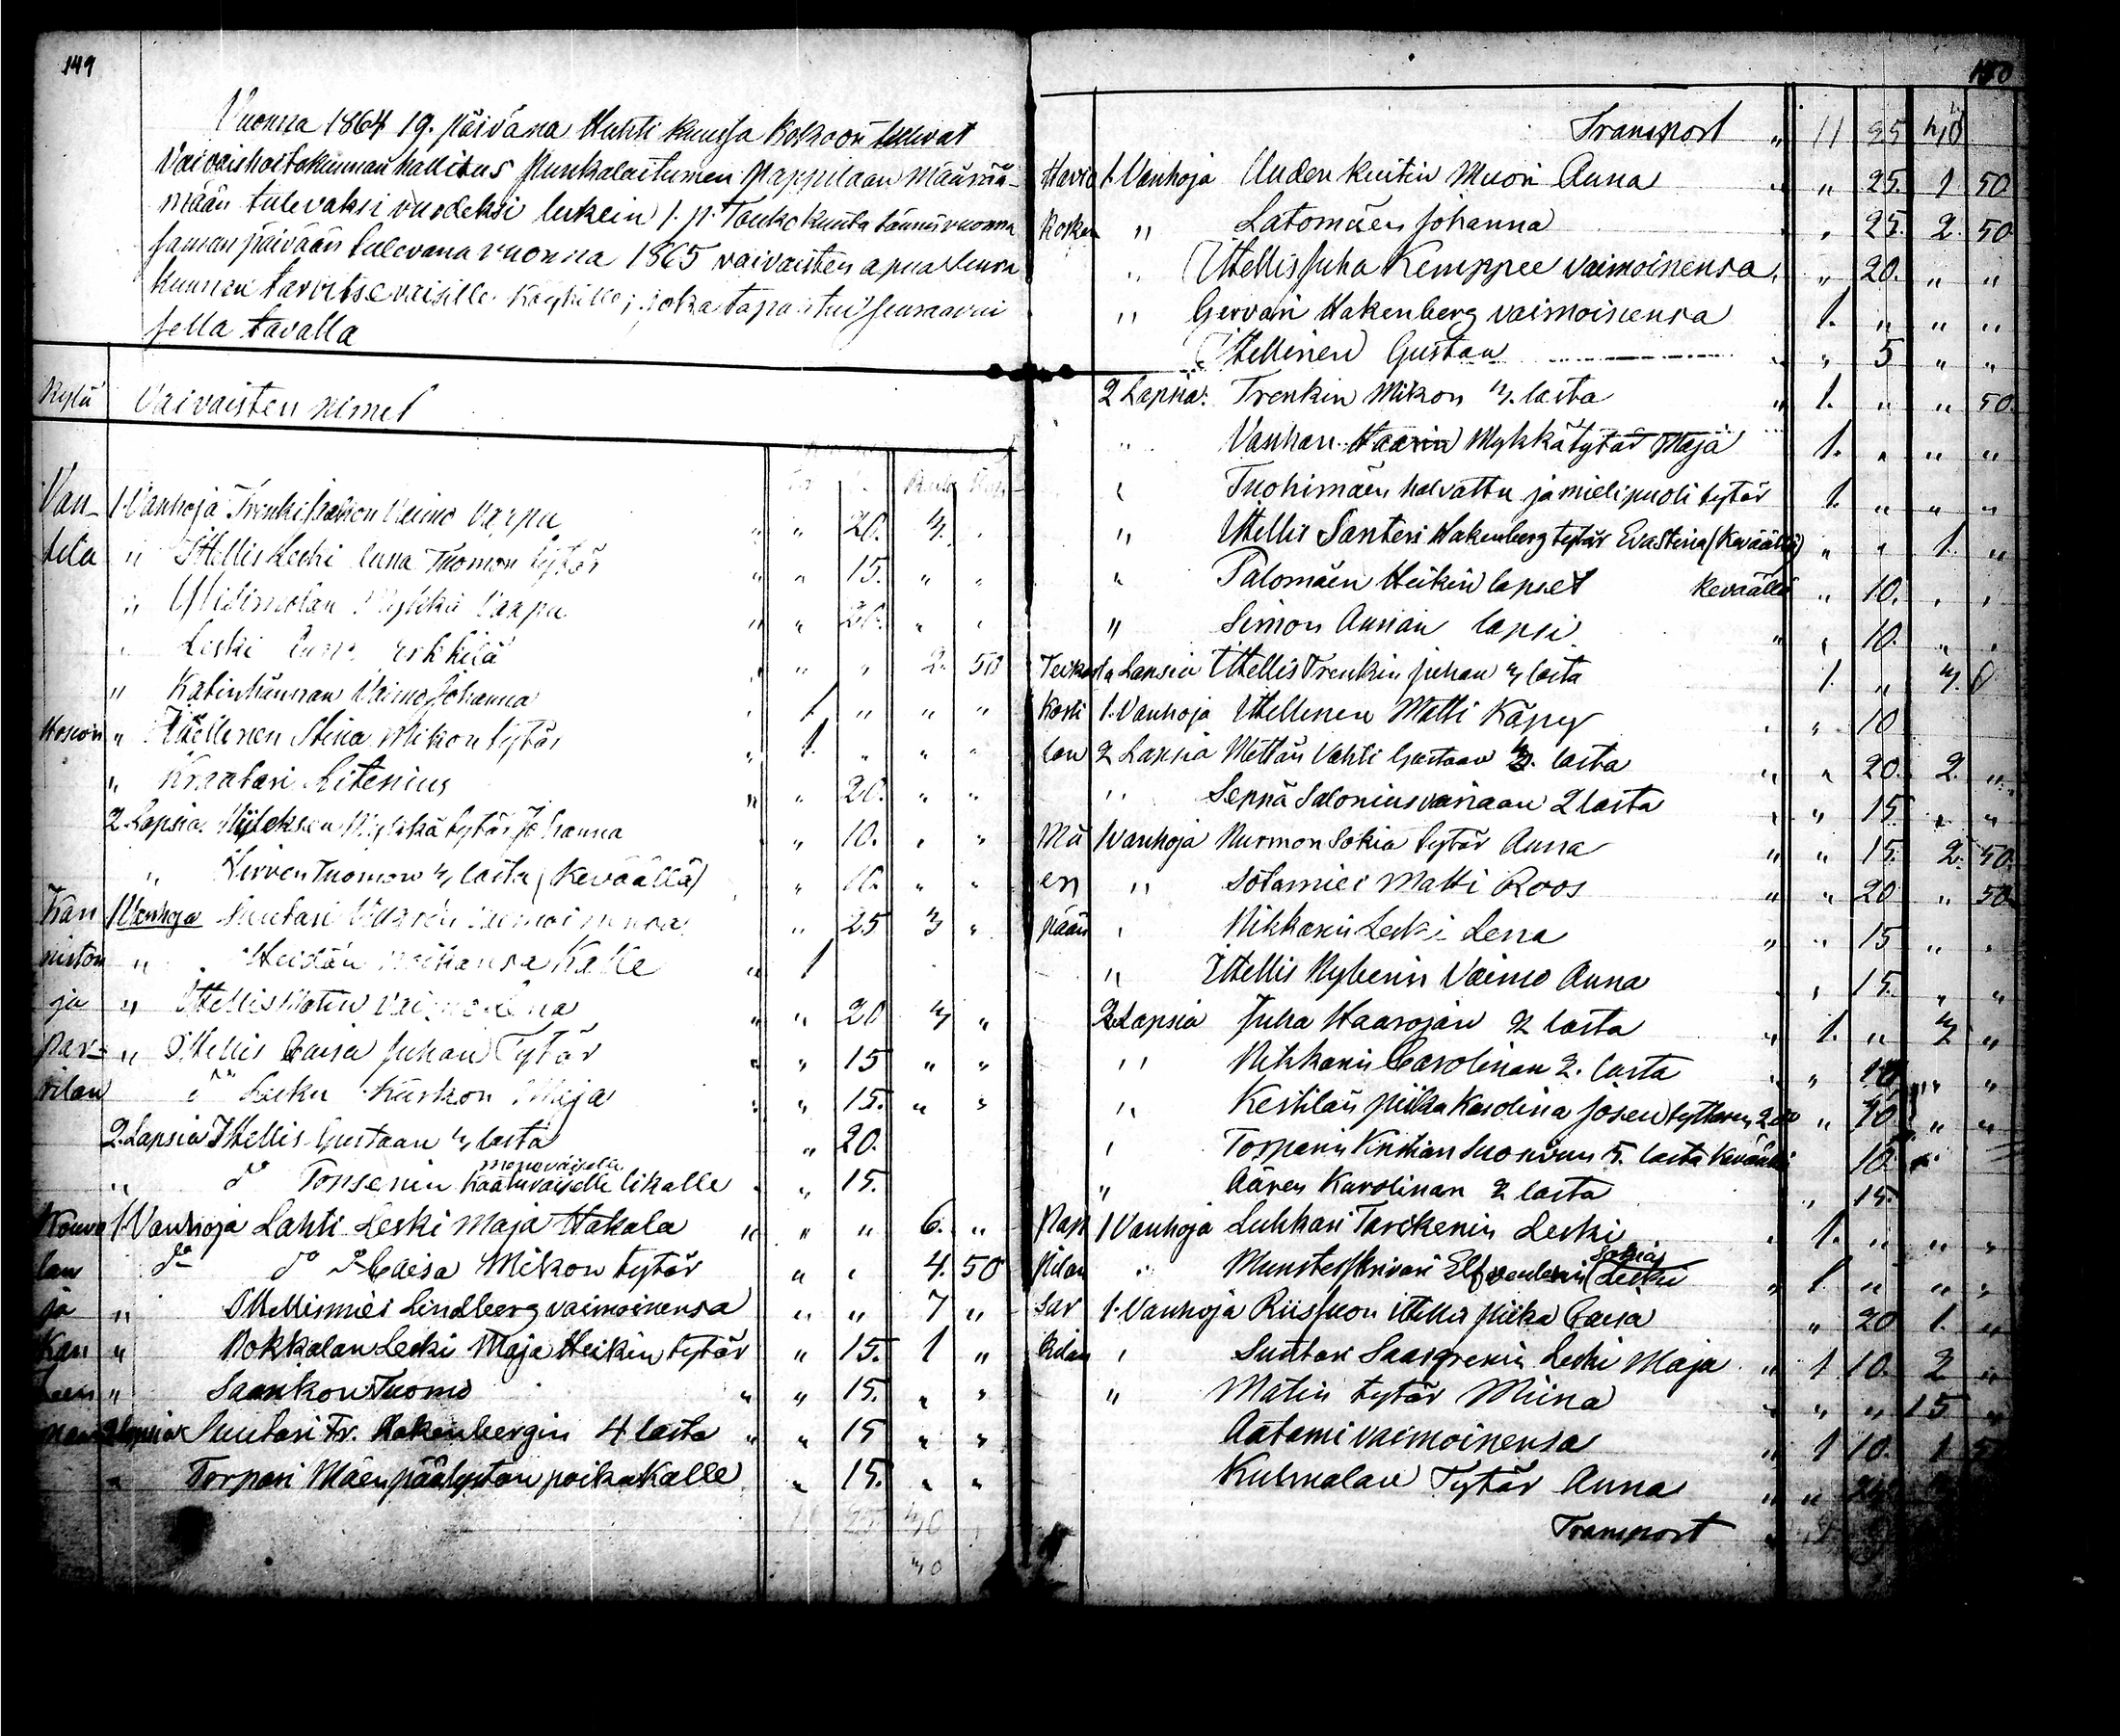 149
Vuonna 1864 19. päivänä Huhti kuusa Kokoon tulivat
Vaivaishoitokunnan hallitus Punkalaitumen Pappilaan määrää-
mään tulevaksi vuodeksi lukein 1. p. Touko kuuta tännä vuonna
saman päivään tulevana vuonna 1865 vaivaisten apua Seura
kunnan tarvitsevaisille Köyhille; joka tapahtui seuraavai
sella tavalla
Kylä Vaivaisten nimet
Van- 1. Vanhoja Trenki Vaimo Varpu " " 20. 4. "
tila " Ittellis Leski Anna Tuomon tytär " " 15. " "
" Mykkä Varpu " " 20. " "
" Leski Anna Erkkilä " " " 2. 50
" Vaimo Johanna " 1 " " "
" Ittellinen Stina Mikon tytär " 1. " " "
" Kraatari Litenius " " 20. " "
2. Lapsia Mykkä tytär Johanna " 10. " "
" Hirven Tuomon 4 lasta (Keväällä) " 10. " "
Kan 1 Vanhoja Suutari vaimoinensa " 25 3 "
niston " Heidän poikansa Kalle " 1
ja " Ittellis Matin Vaimo Lena " " 20 4 "
Par- " Ittellis Caisa Juhan Tytär " " 15 " "
rilan do Lesken Maja " " 15. " "
2. Lapsia Ittellis Gustaan 4 lasta " 20.
" do Tonsenin Kaatuvaiselle likalle " 15.
Kouvo 1. Vanhoja Lahti Leski Maja Hakala " " " 6. "
lan do do do Caisa Mikon tytär " " 4. 50
ja " Ittellismies Lindberg vaimoinensa " " 7 "
Kan " Kokkalan Leski Maja Heikin tytär " 15. 1 "
" Saarikon Tuomo " " 15. " "
2 Lapsia Suutari Fr. Hakenbergin 4 lasta " " 15 " "
" Torpari Mäenpään poika Kalle " 15. " "
11 25 40
150
Transport " 11 25 40
1. Vanhoja Uuden kuitin Muori Anna " " 25. 1 50
Kosken " Latomäen Johanna " 25. 2. 50
" Ittellis Juha Kemppee vaimoinensa " " 20. " "
" Gervari Hakenberg vaimoinensa 1. " " "
Ittellinen Gustav " " 5 " "
2 Lapsia: Trenkin Mikon 4. lasta " 1. " " 50.
" Vanhan Mykkä tytär Maja 1. " " "
" Tuohimäen halvattu ja mielipuoli tytär 1. " " "
" Ittellis Santeri Hakenberg tytär Evastina (Keväällä) " " 1. "
" Palomäen Heikin lapset keväällä " 10. " "
" Simon Annan lapsi " " 10. " "
2 Lapsia Ittellis Trenkin Juhan 4 lasta 1. "
1. Vanhoja Ittellinen Matti Käpy " " 10
lan 2 Lapsia Mettän Vahti Gustaav lasta " " 20. 2. "
" Seppä Salonius vainaan 2 lasta " " 15. " "
Mä 1 Vanhoja Nurmon Sokia tytär Anna " " 15. 2. 50.
en " Sotamies Matti Roos " " 20 " 50.
pään " Nikkarin Leski Lena " " 15 " "
" Ittellis Nybenin Vaimo Anna " " 15. " "
2 Lapsia Juha Haarojan 2 lasta " 1. " 4 "
" Nikkarin Carolinan 2. lasta " " 10 " "
" Kestilän piika Karolina Josen tyttären " 10. " "
" Torparin Kristian 5. lasta keväällä 10.
" Aären Karolinan 2 lasta " 15.
Papp 1 Vanhoja Lukkari Leski " 1. " " "
pilan " Munsterskrivari Elfvenbergin Sokia Leski " 1 " " "
Sar 1. Vanhoja Riissuon ittellis piika Caisa " 20 1. "
kilan " Suutari Saargrenin Leski Maja " 1 10. 2 "
" Matin tytär Miina " " " 15 "
Aatami vaimoinensa " 1 10. 1 50
Kulmalan Tytär Anna " "
Transport